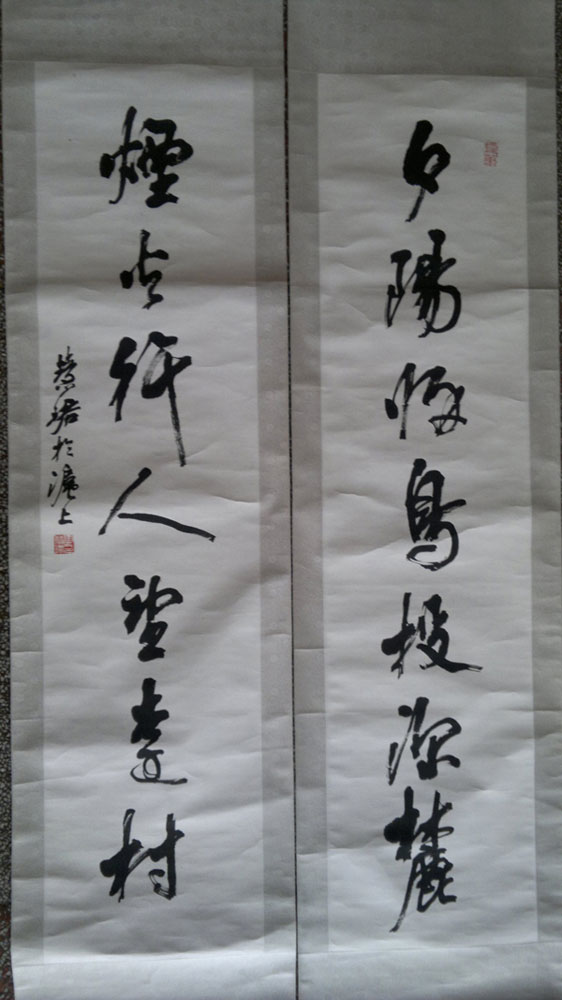 夕陽歸鳥投深麓
煙火行人望遠村
慧珺於滬上